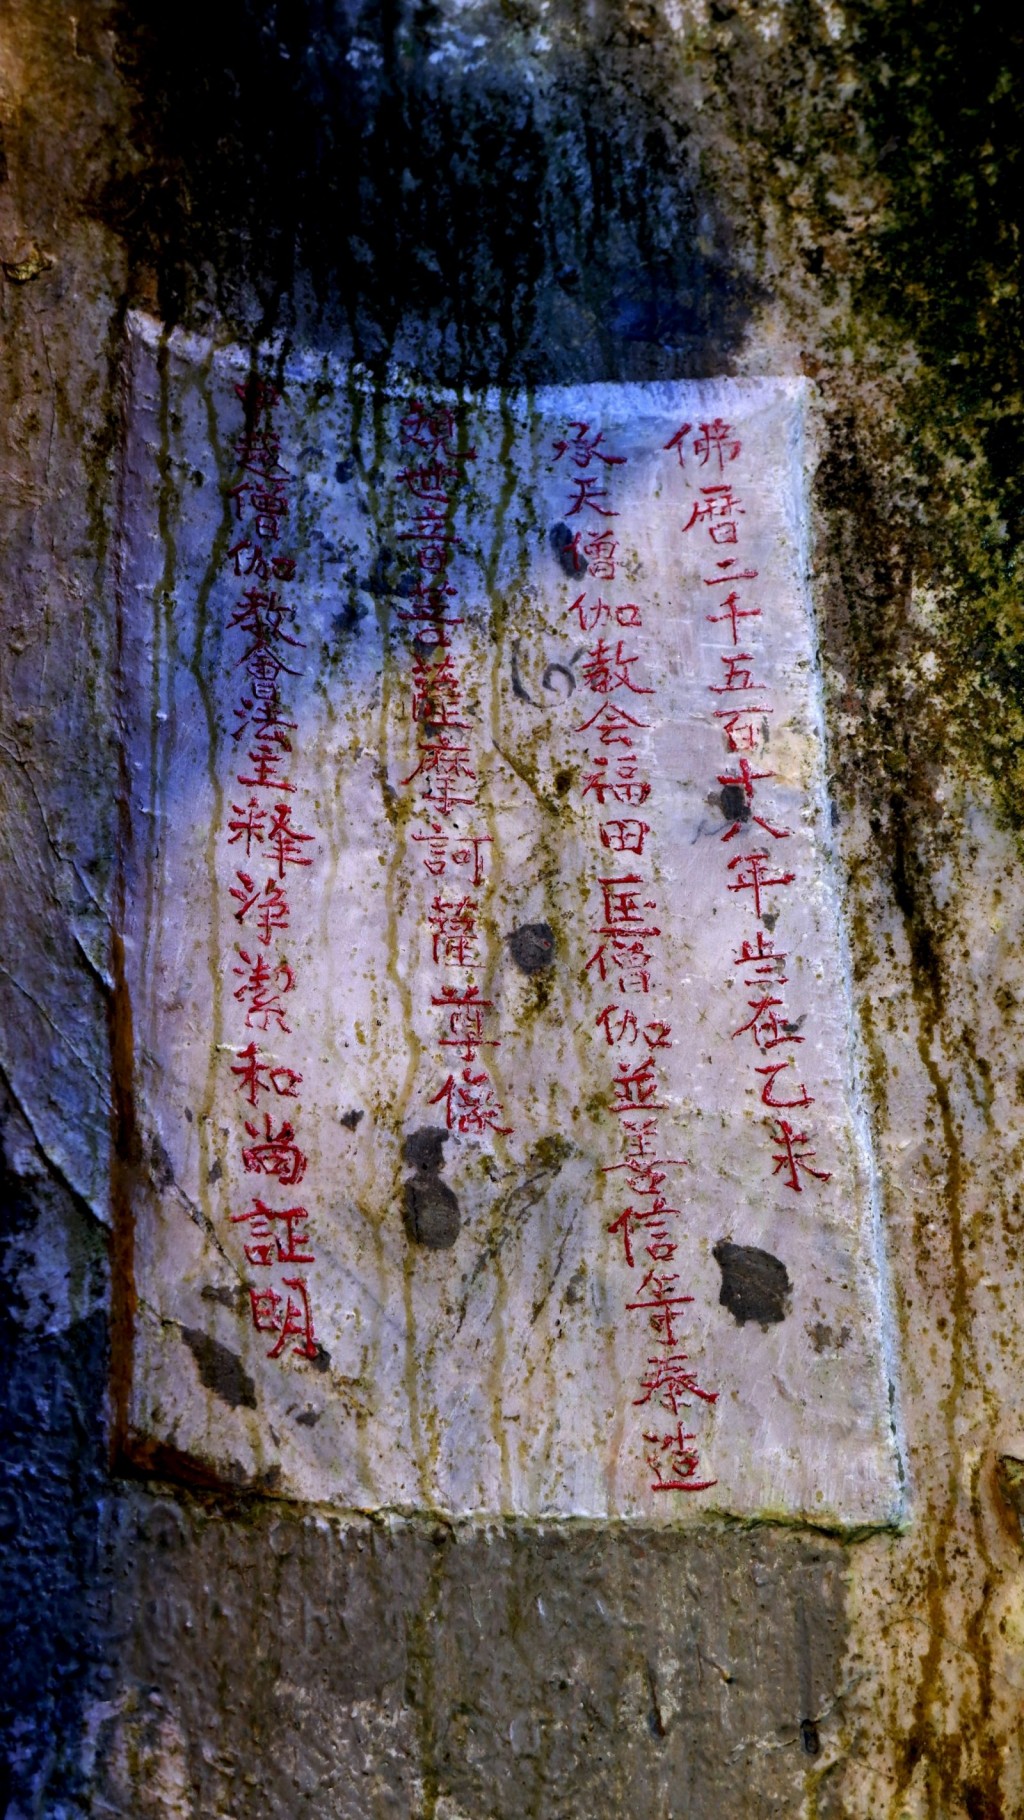 佛暦二千五百十八年歩在乙未
承天僧伽教会福田匡僧伽並善信等奉造
觀世音菩薩摩訶薩尊像
中越僧伽教會法主釋淨潔和尚証明